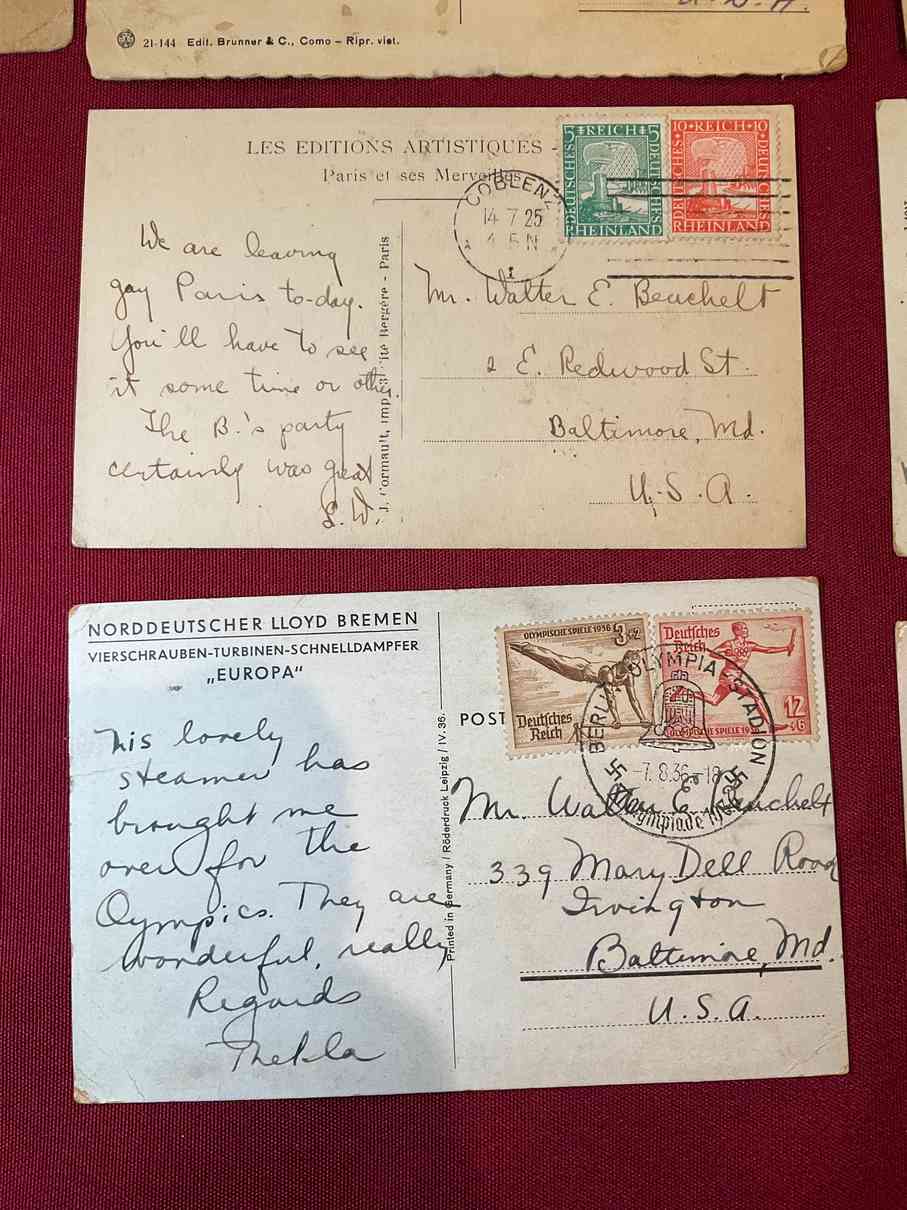 U.S.A.
21-144 Edit. Brunner & C., Como – Ripr. viet.
LES EDITIONS ARTISTIQUES -
Paris et ses Merveilles
COBLENZ
14 7 25
4-5 N
5 REICH 5
DEUTSCHES
DEUTSCHES
RHEINLAND
10 REICH 10
DEUTSCHES
DEUTSCHES
RHEINLAND
We are leaving
gay Paris to-day.
You'll have to see
it some time or other.
The B.'s party
certainly was great
S.W.
J. Cormault, imp. Cité Bergère - Paris
Mr. Walter E. Beuchelt
2 E. Redwood St.
Baltimore, Md.
U.S.A.
NORDDEUTSCHER LLOYD BREMEN
VIERSCHRAUBEN-TURBINEN-SCHNELLDAMPFER
„EUROPA“
This lovely
steamer has
brought me
over for the
Olympics. They are
wonderful, really
Regards
Thekla
Printed in Germany / Röderdruck Leipzig / IV. 36.
POST
OLYMPISCHE SPIELE 1936
3+2
Deutsches
Reich
Deutsches
Reich
12
+6
OLYMPISCHE SPIELE 1936
BERLIN OLYMPIA-STADION
-7.8.36-18
Olympiade 1936
Mr. Walter E. Beuchelt
339 Mary Dell Road
Irvington
Baltimore, Md.
U.S.A.